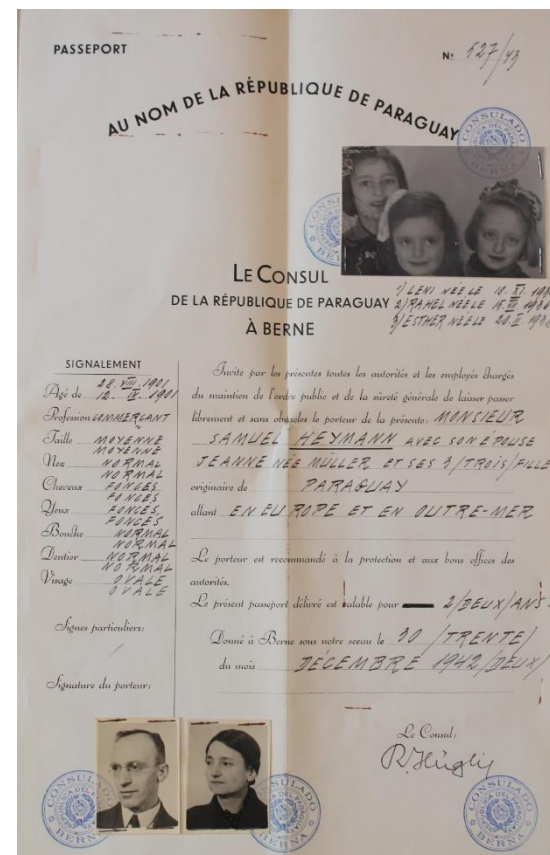 PASSEPORT
No 527/43
AU NOM DE LA RÉPUBLIQUE DE PARAGUAY
CONSULADO
1) LENI NÉE LE 10. XI.
2) RAHEL NÉE LE
3) ESTHER NÉE LE 20. II.
LE CONSUL
DE LA RÉPUBLIQUE DE PARAGUAY
À BERNE
SIGNALEMENT
28. VIII. 1901
Agé de 12. IX. 1901
Profession COMMERÇANT
Taille MOYENNE
MOYENNE
Nez NORMAL
NORMAL
Cheveux FONCES
FONCES
Yeux FONCES
FONCES
Bouche NORMAL
NORMAL
Dentier NORMAL
NORMAL
Visage OVALE
OVALE
Signes particuliers:
Signature du porteur:
Invite par les présentes toutes les autorités et les employés chargés
du maintien de l'ordre public et de la sûreté générale de laisser passer
librement et sans obstacles le porteur de la présente: MONSIEUR
SAMUEL HEYMANN AVEC SON EPOUSE
JEANNE NÉE MÜLLER ET SES 3/TROIS/FILLE
originaire de PARAGUAY
allant EN EUROPE ET EN OUTRE-MER
Le porteur est recommandé à la protection et aux bons offices des
autorités.
Le présent passeport délivré est valable pour 2/DEUX/ANS
Donné à Berne sous notre sceau le 30/TRENTE/
du mois DÉCEMBRE 1942/DEUX/
Le Consul:
R. Hügli
CONSULADO
BERNA
CONSULADO
BERNA
CONSULADO
BERNA